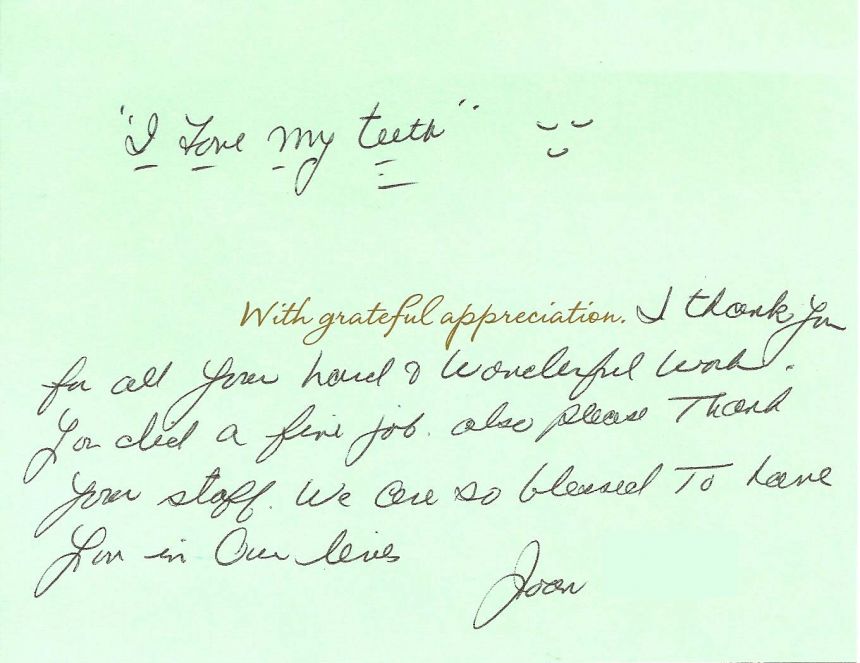 "I Love My teeth"
With grateful appreciation. I thank you
for all your hard & wonderful work.
You did a fine job. also please Thank
your staff. We are so blessed To have
you in Our lives
Joan